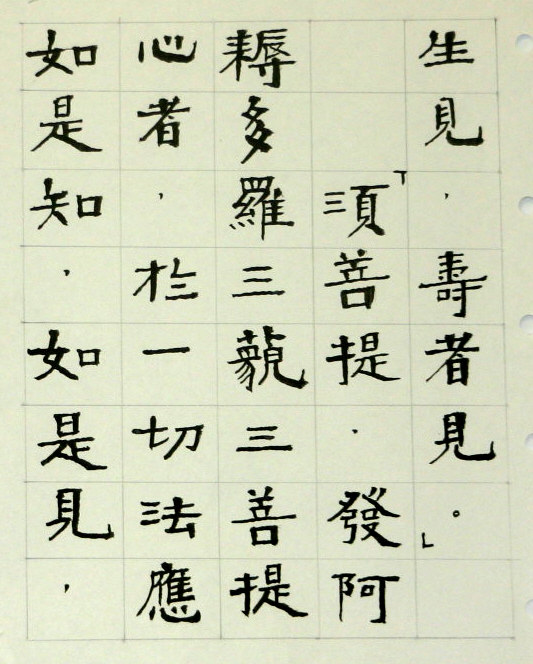 生見，壽者見。」
「須菩提．發阿
耨多羅三藐三菩提
心者，於一切法應
如是知，如是見，